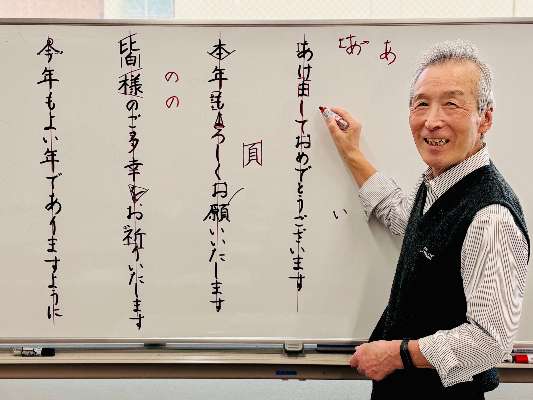 あ
あけましておめでとうございます
い
本年もよろしくお願いいたします
頁
のの
皆様のご多幸をお祈りいたします
今年もよい年でありますように